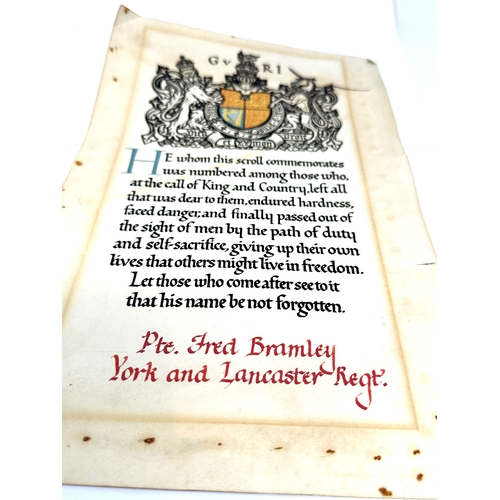 GvRI
HE whom this scroll commemorates
was numbered among those who,
at the call of King and Country, left all
that was dear to them, endured hardness,
faced danger, and finally passed out of
the sight of men by the path of duty
and self-sacrifice, giving up their own
lives that others might live in freedom.
Let those who come after see to it
that his name be not forgotten.
Pte. Fred Bramley
York and Lancaster Regt.